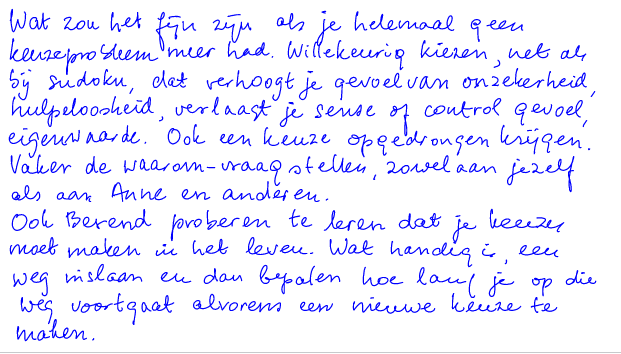 Wat zou het fijn zijn als je helemaal geen
keuzeprobleem meer had. Willekeurig kiezen, net als
bij sudoku, dat verhoogt je gevoel van onzekerheid,
hulpeloosheid, verlaagt je sense of control gevoel,
eigenwaarde. Ook een keuze opgedrongen krijgen.
Vaker de waarom-vraag stellen, zowel aan jezelf
als aan Anne en anderen.
Ook Berend proberen te leren dat je keuzes
moet maken in het leven. Wat handig is, een
weg inslaan en dan bepalen hoe lang je op die
weg voortgaat alvorens een nieuwe keuze te
maken.